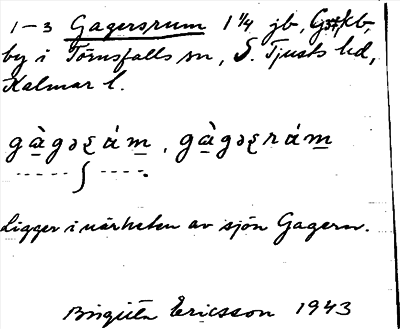 1-3 Gagersrum 1 1/4 jb,
by i Törnsfalls sn, S. Tjusts hd,
Kalmar l.
Ligger i närheten av sjön Gagern.
Birgitta Ericsson 1943